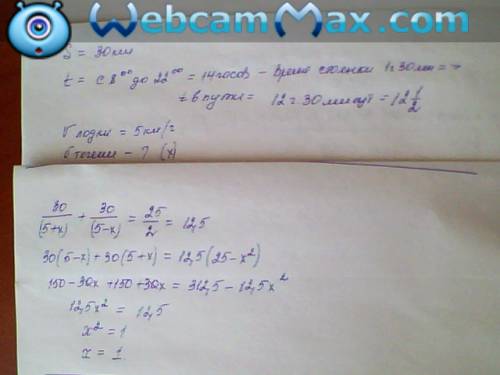 WebcamMax.com
S = 30км
t = с 8⁰⁰ до 22⁰⁰ = 14 часов – время стоянки 1ч 30мин =>
t в пути = 12ч. 30 минут = 12 1/2
V лодки = 5 км/ч
V течени – ? (x)
30/(5+x) + 30/(5-x) = 25/2 = 12,5
30(5-x)+30(5+x) = 12,5(25-x²)
150-30x+150+30x = 312,5-12,5x²
12,5x² = 12,5
x² = 1
x = 1